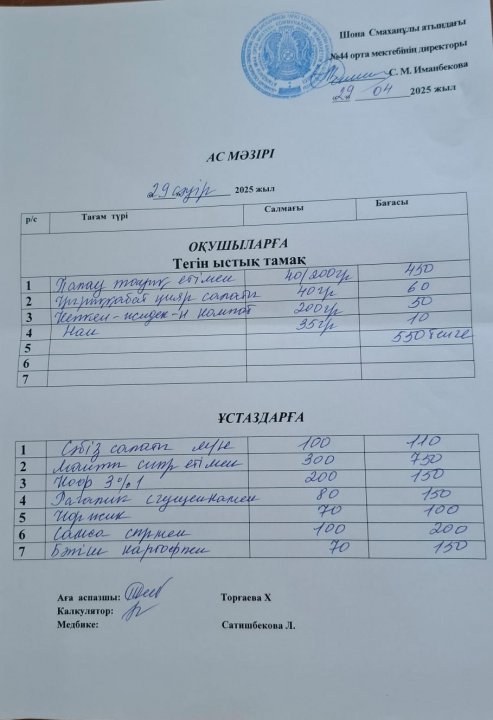 Шона Смаханұлы атындағы
№44 орта мектебінің директоры
С. М. Иманбекова
29 04 2025 жыл
АС МӘЗІРІ
29 сәуір 2025 жыл
р/с Тағам түрі Салмағы Бағасы
ОҚУШЫЛАРҒА
Тегін ыстық тамақ
1 Палау тауық етімен 40/200гр 430
2 қырыққабат қияр салаты 40гр 60
3 Кепкен-жидек-н компот 200гр 50
4 Нан 35гр 10
5 550 тенге
6
7
ҰСТАЗДАРҒА
1 Сәбіз салаты 100 110
2 Манты сиыр етімен 300 750
3 200 150
4 Рогалик сгущенкамен 80 150
5 Коржик 70 100
6 Самса 100 200
7 Бәліш картофпен 70 150
Аға аспазшы: Торғаева Х
Калкулятор:
Медбике: Сатишбекова Л.